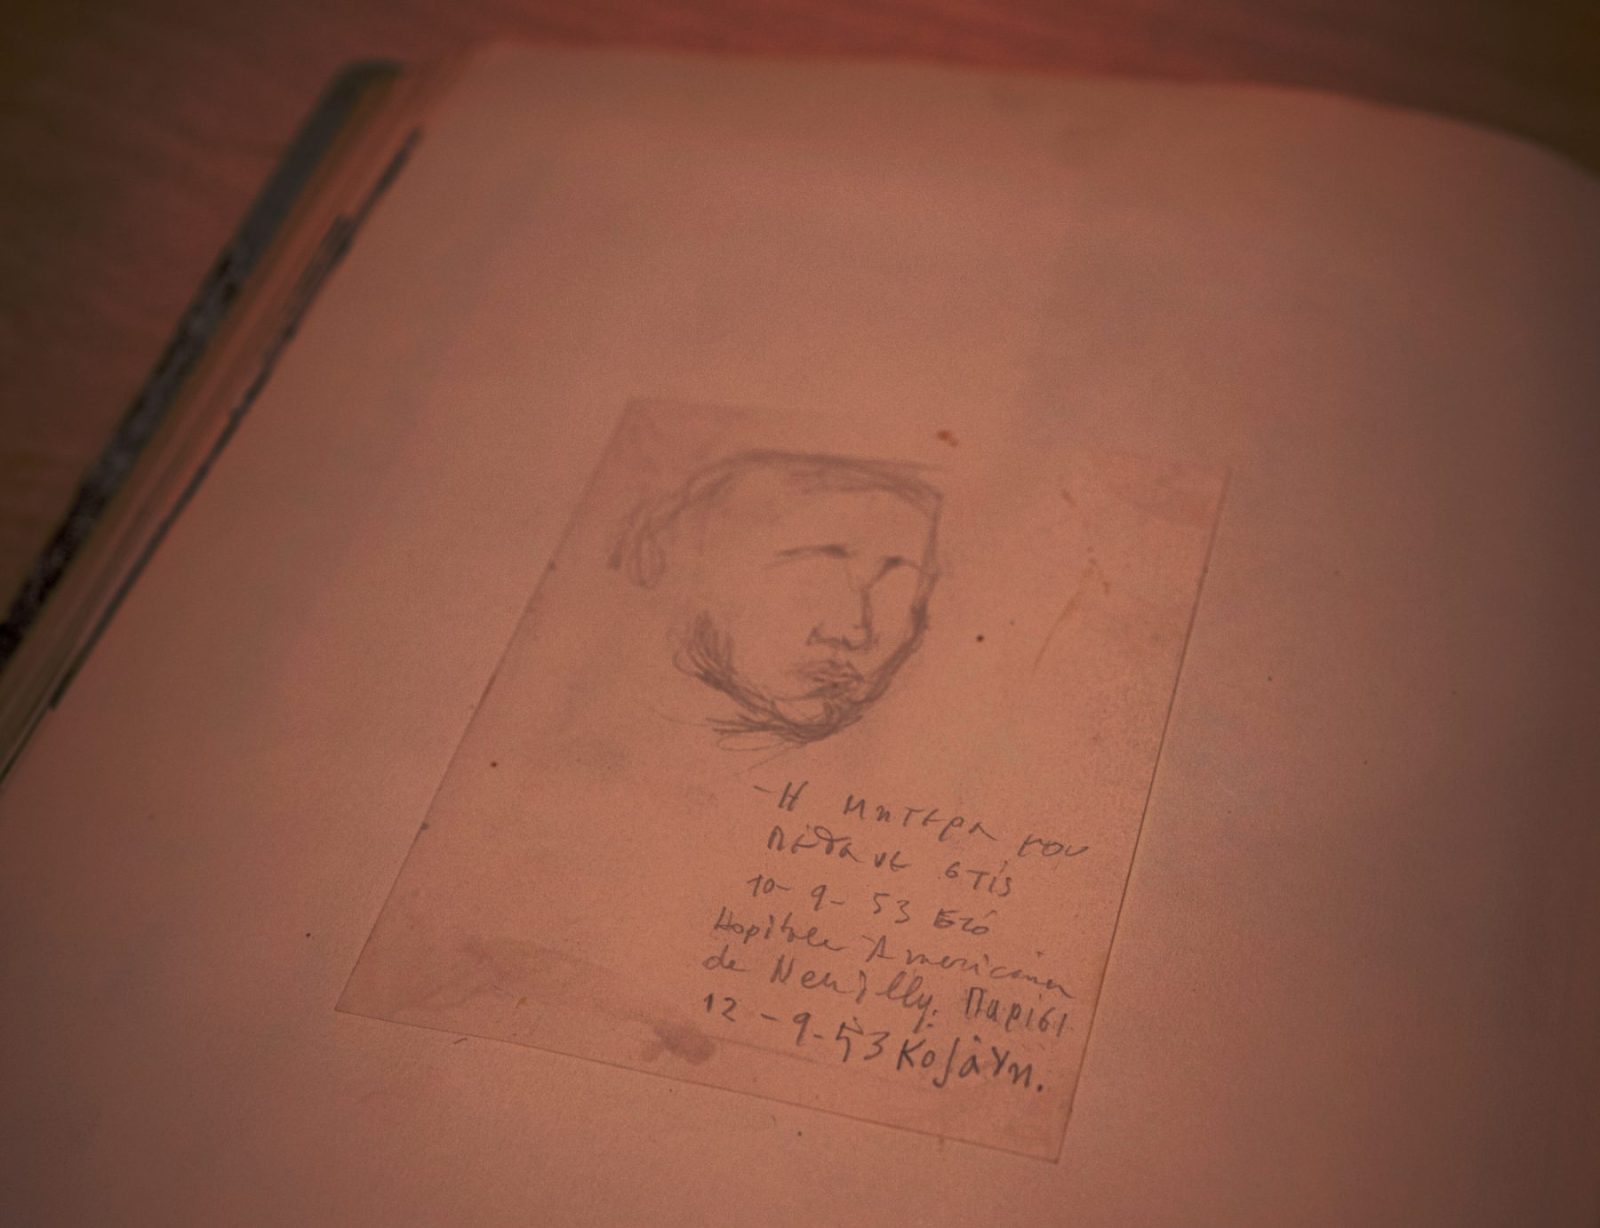 -Η μητερα μου
πέθανε στίς
10-9-53 Στό
Hopitale Americaine
de Neuilly. Παρίσι
12-9-53 Κοζάνη.